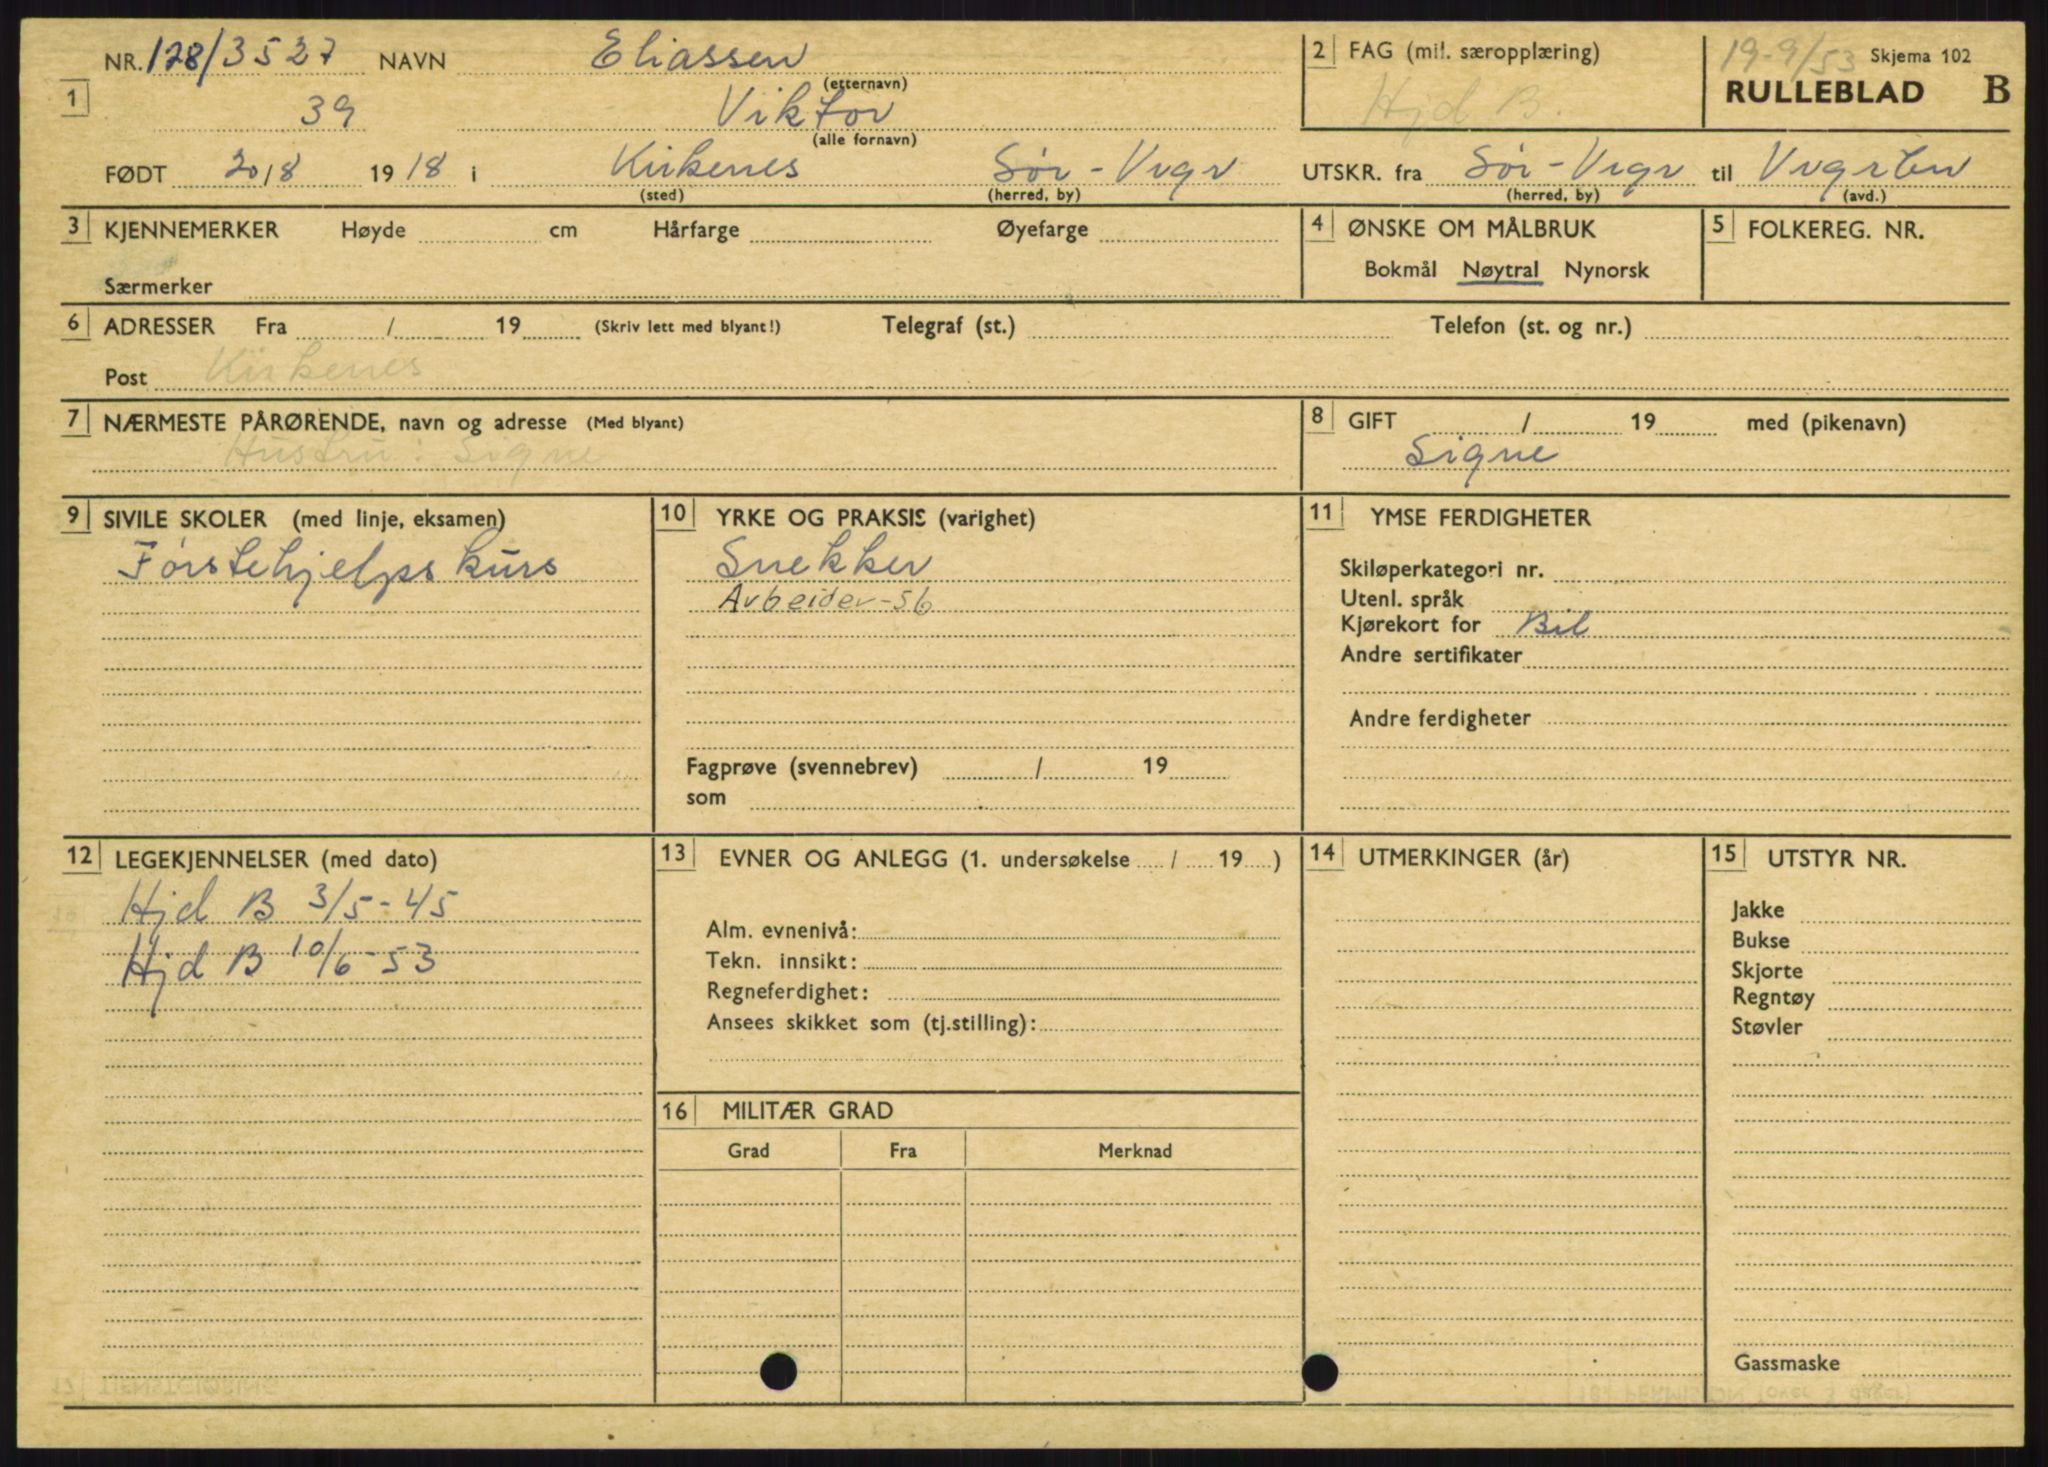 NR. 128/3527 NAVN Eliassen
(etternavn)
2 FAG (mil. særopplæring)
19-9/53 Skjema 102
Hjd B.
RULLEBLAD B
1 39 Viktor
(alle fornavn)
FØDT 20/8 1918 i Kirkenes Sør-Vrgr
(sted) (herred, by)
UTSKR. fra Sør-Vrgr til
(herred, by) (avd.)
3 KJENNEMERKER Høyde cm Hårfarge Øyefarge
Særmerker
4 ØNSKE OM MÅLBRUK
Bokmål Nøytral Nynorsk
5 FOLKEREG. NR.
6 ADRESSER Fra / 19 (Skriv lett med blyant!) Telegraf (st.) Telefon (st. og nr.)
Post Kirkenes
7 NÆRMESTE PÅRØRENDE, navn og adresse (Med blyant)
Hustru: Signe
8 GIFT / 19 med (pikenavn)
Signe
9 SIVILE SKOLER (med linje, eksamen)
Førstehjelpskurs
10 YRKE OG PRAKSIS (varighet)
Snekker
Arbeider-56
Fagprøve (svennebrev) / 19
som
11 YMSE FERDIGHETER
Skiløperkategori nr.
Utenl. språk
Kjørekort for Bil
Andre sertifikater
Andre ferdigheter
12 LEGEKJENNELSER (med dato)
Hjd B 3/5-45
Hjd B 10/6-53
13 EVNER OG ANLEGG (1. undersøkelse / 19 )
Alm. evnenivå:
Tekn. innsikt:
Regneferdighet:
Ansees skikket som (tj.stilling):
14 UTMERKINGER (år)
15 UTSTYR NR.
Jakke
Bukse
Skjorte
Regntøy
Støvler
Gassmaske
16 MILITÆR GRAD
Grad Fra Merknad